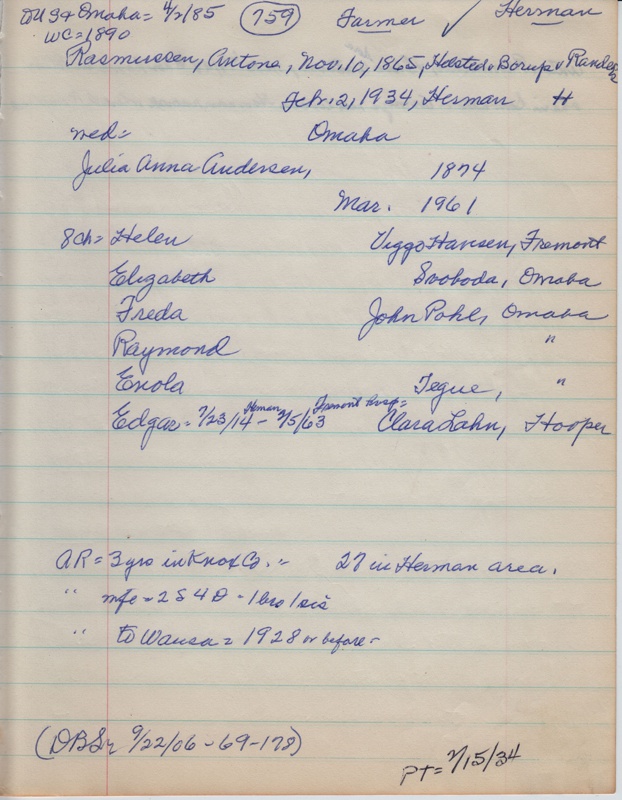 DUS + Omaha = 4/2/85 (759) Farmer ✓ Herman
WC = 1890
Rasmussen, Antone, Nov. 10, 1865, Halsted v Borup v Randers
Feb. 2, 1934, Herman H
med = Omaha
Julia Anna Andersen, 1874
Mar. 1961
8ch = Helen Viggo Hansen, Fremont
Elizabeth Svoboda, Omaha
Freda John Pohl, Omaha
Raymond "
Enola Tegue, "
Edgar = 7/23/14 Herman - 7/5/63 Fremont Hosp = Clara Lahn, Hooper
AR = 3 yrs in Knox Co. - 27 in Herman area.
" mfc = 2 S 4 D - 1 bro 1 sis
" to Wausa = 1928 or before -
(DBSr 9/22/06 - 69 - 178)
PT = 7/15/34